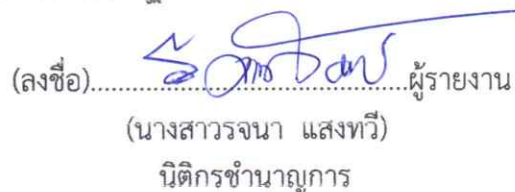 (ลงชื่อ)....................................ผู้รายงาน
(นางสาวรจนา แสงทวี)
นิติกรชำนาญการ